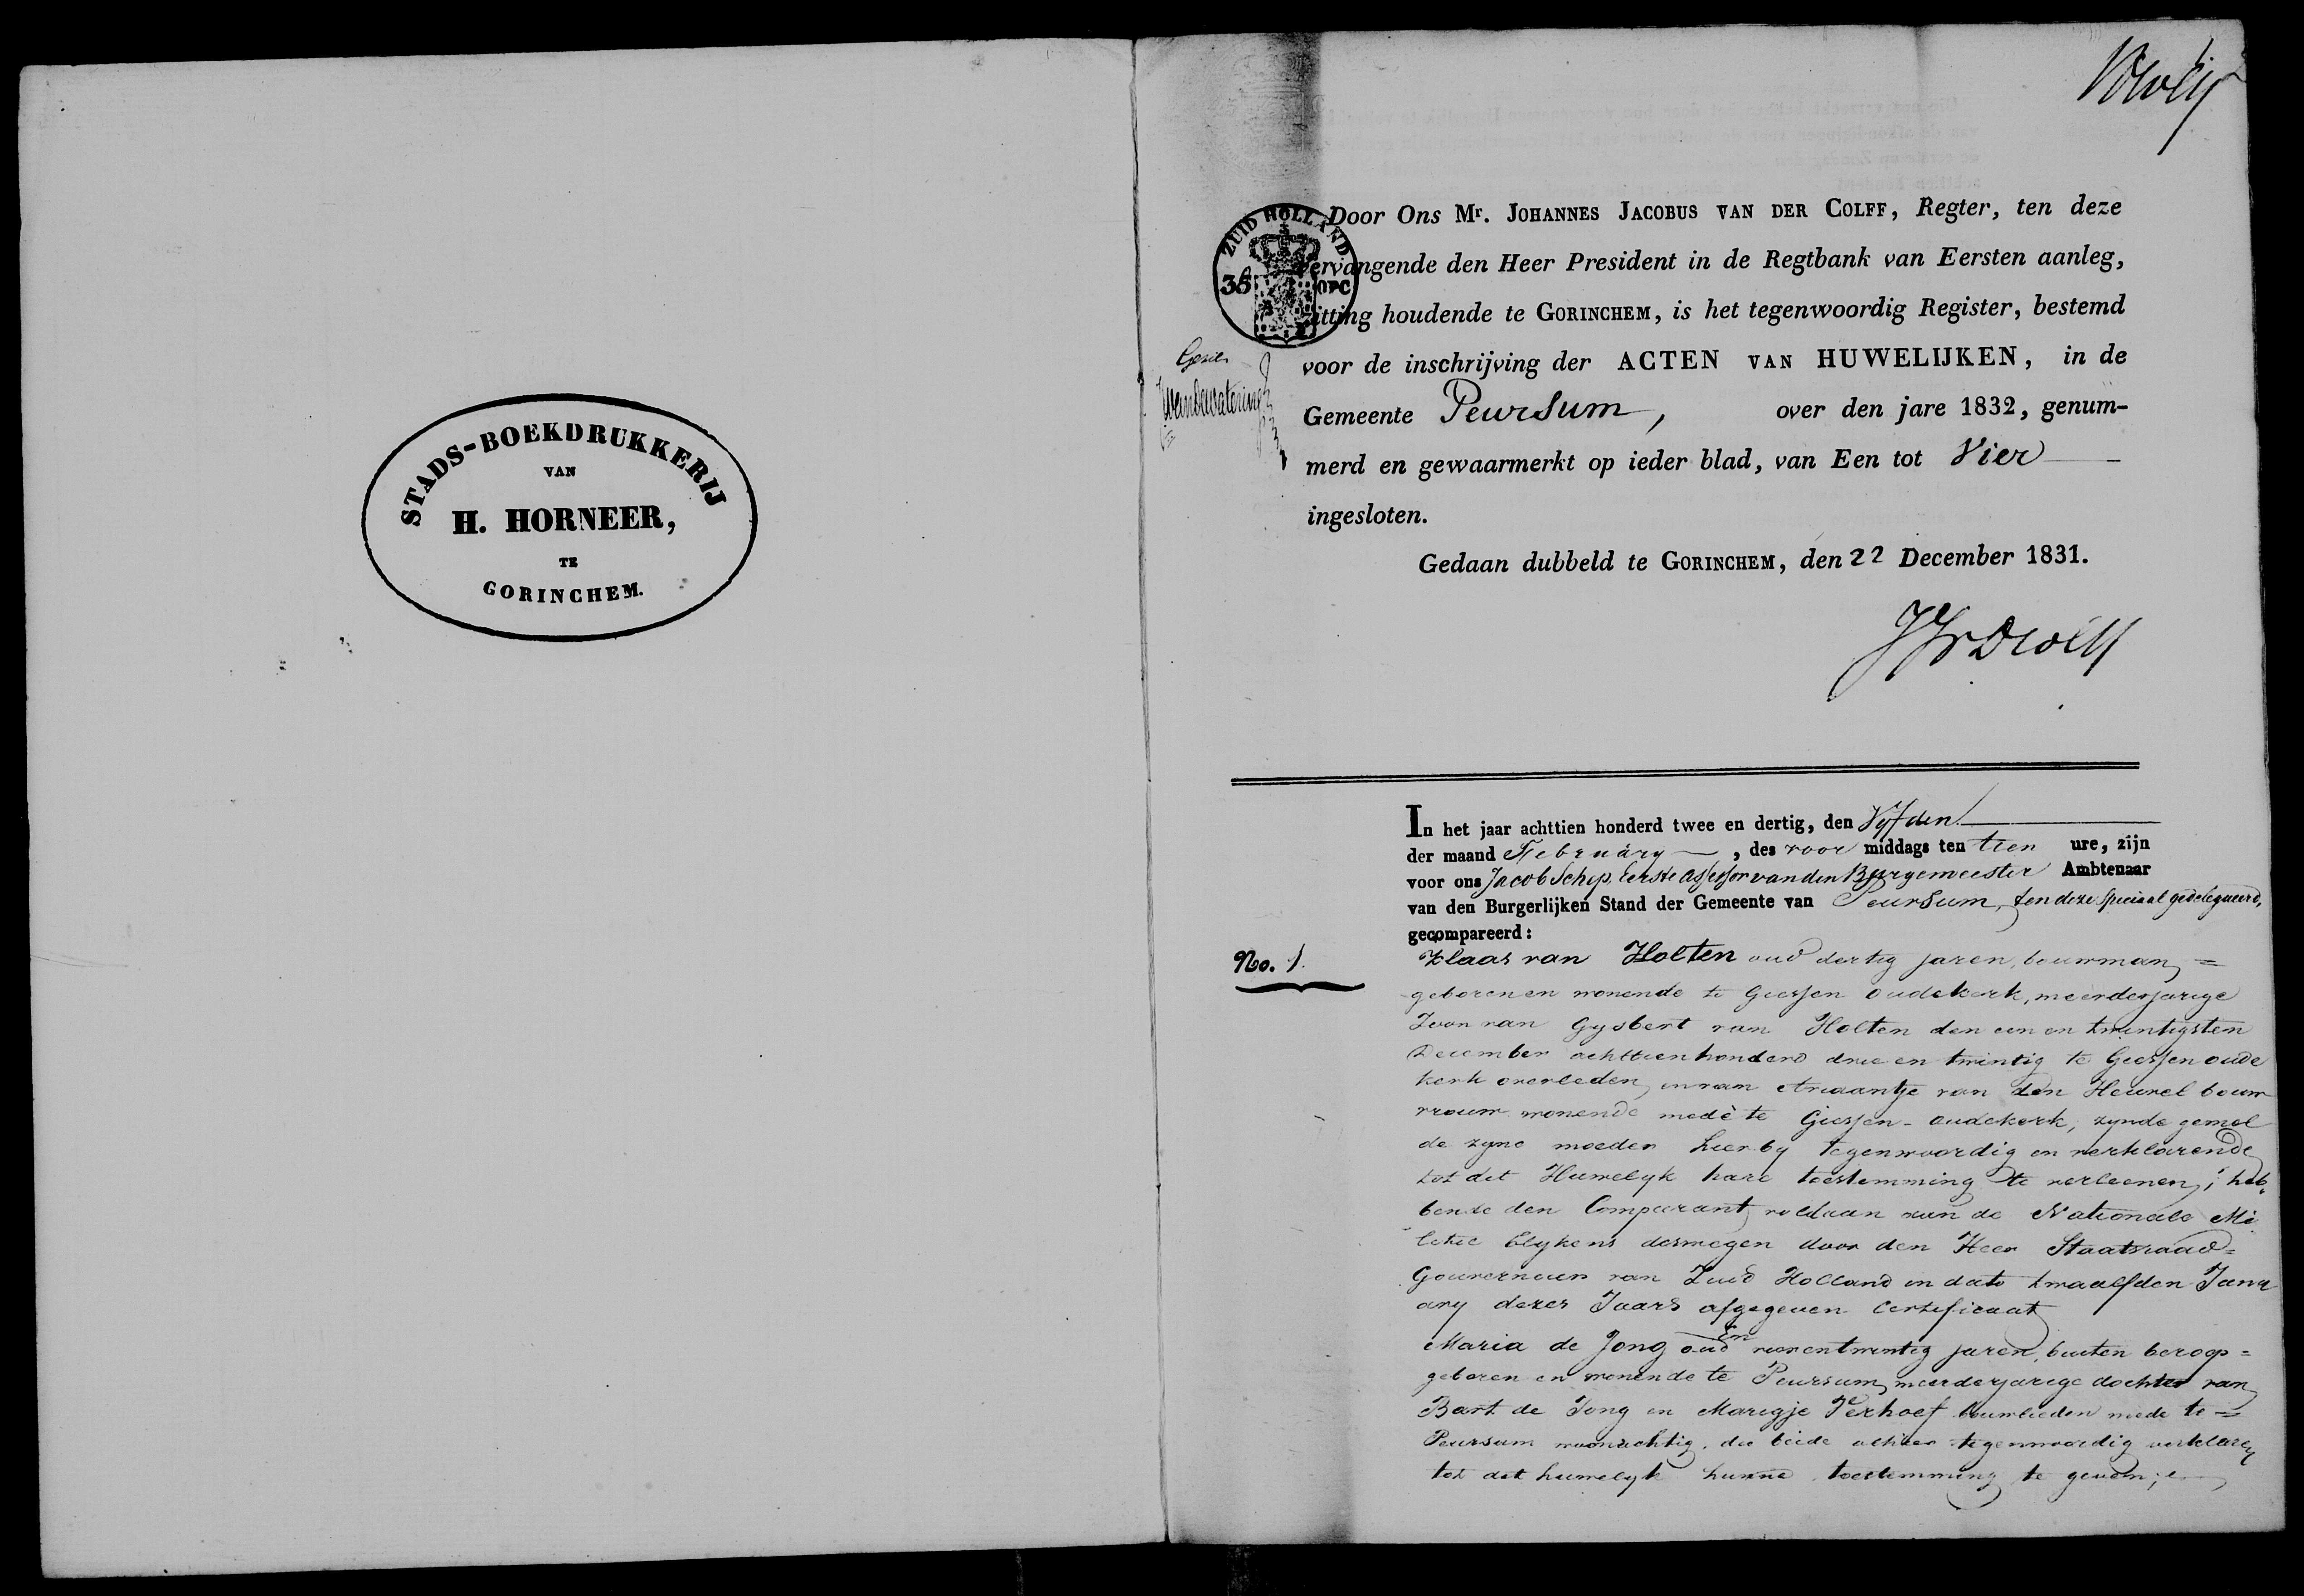 STADS-BOEKDRUKKERIJ
VAN
H. HORNEER,
TE
GORINCHEM.
ZUID HOLLAND
Door Ons Mr. JOHANNES JACOBUS VAN DER COLFF, Regter, ten deze
vervangende den Heer President in de Regtbank van Eersten aanleg,
zitting houdende te GORINCHEM, is het tegenwoordig Register, bestemd
voor de inschrijving der ACTEN VAN HUWELIJKEN, in de
Gemeente Peursum, over den jare 1832, genum-
merd en gewaarmerkt op ieder blad, van Een tot Vier
ingesloten.
Gedaan dubbeld te GORINCHEM, den 22 December 1831.
In het jaar achttien honderd twee en dertig, den Vyfden
der maand February, des voor middags ten tien ure, zijn
voor ons Jacob Schip, Eerste Assessor van den Burgemeester Ambtenaar
van den Burgerlijken Stand der Gemeente van Peursum, ten deze speciaal gedelegueerd,
gecompareerd:
No. 1.
Klaas van Holten oud dertig jaren, bouwman, =
geboren en wonende te Giessen oudekerk, meerderjarige
Zoon van Gysbert van Holten den een en twintigsten
December achttienhonderd drie en twintig te Giessen oude
kerk overleden, en van Ariaantje van den Heuvel bouw
vrouw wonende mede te Giessen-oudekerk, zynde gemel
de zyne moeder hier by tegenwoordig en verklarende
tot dit Huwelyk hare toestemming te verleenen; heb
bende den Comparant voldaan aan de Nationale Mi
litie blykens deswegen door den Heer Staatsraad=
Gouverneur van Zuid Holland in dato twaalfden Janu
ary dezes Jaars afgegeven Certificaat
En
Maria de Jong oud negenentwintig jaren, buiten beroep =
geboren en wonende te Peursum, meerderjarige dochter van
Bart de Jong en Marigje Verhoef bouwlieden mede te =
Peursum woonachtig, die beide alhier tegenwoordig verklaren
tot dit huwelyk hunne toestemming te geven;